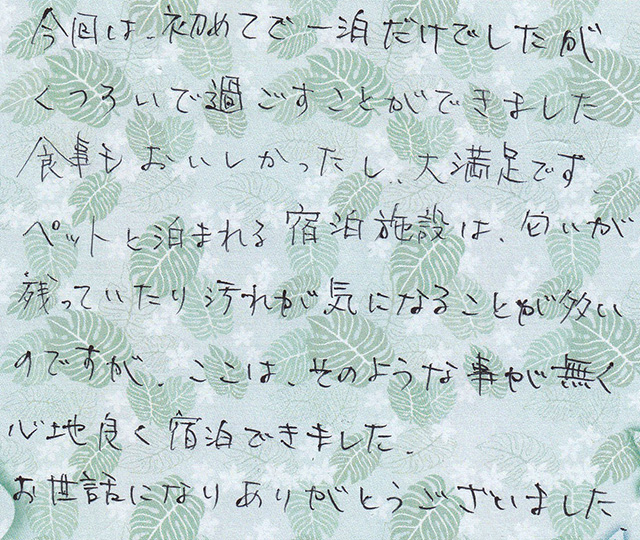 今回は、初めてで一泊だけでしたが
くつろいで過ごすことができました
食事もおいしかったし、大満足です。
ペットと泊まれる宿泊施設は、匂いが
残っていたり汚れが気になることが多い
のですが、ここは、そのような事が無く
心地良く宿泊できました。
お世話になりありがとうございました。